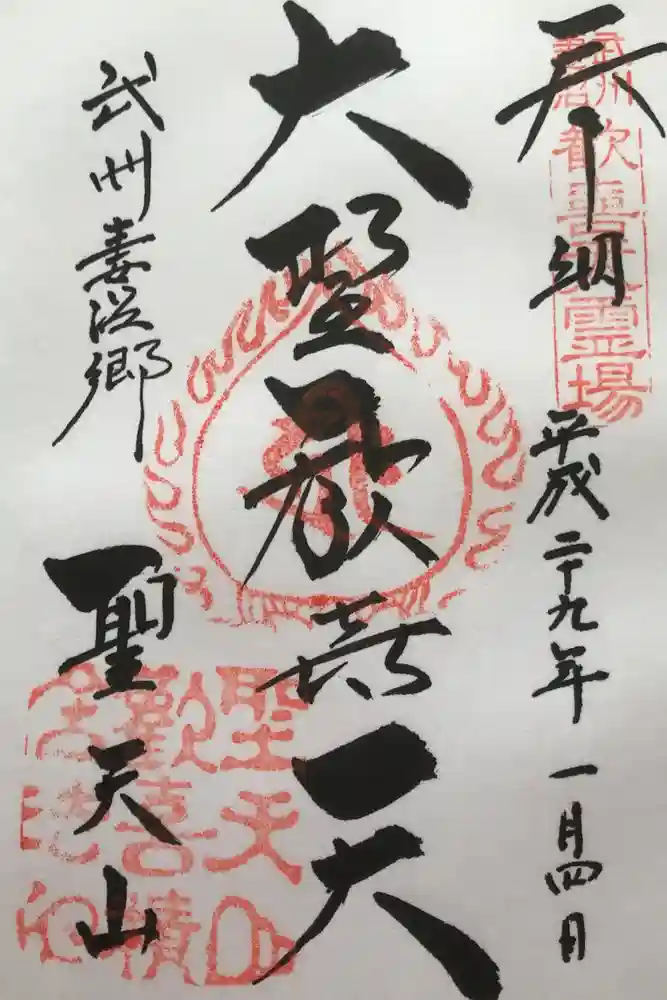 奉納
平成二十九年一月四日
大聖歓喜天
武州妻沼郷
聖天山
武州
妻沼
歓喜天霊場
聖天山
歓喜